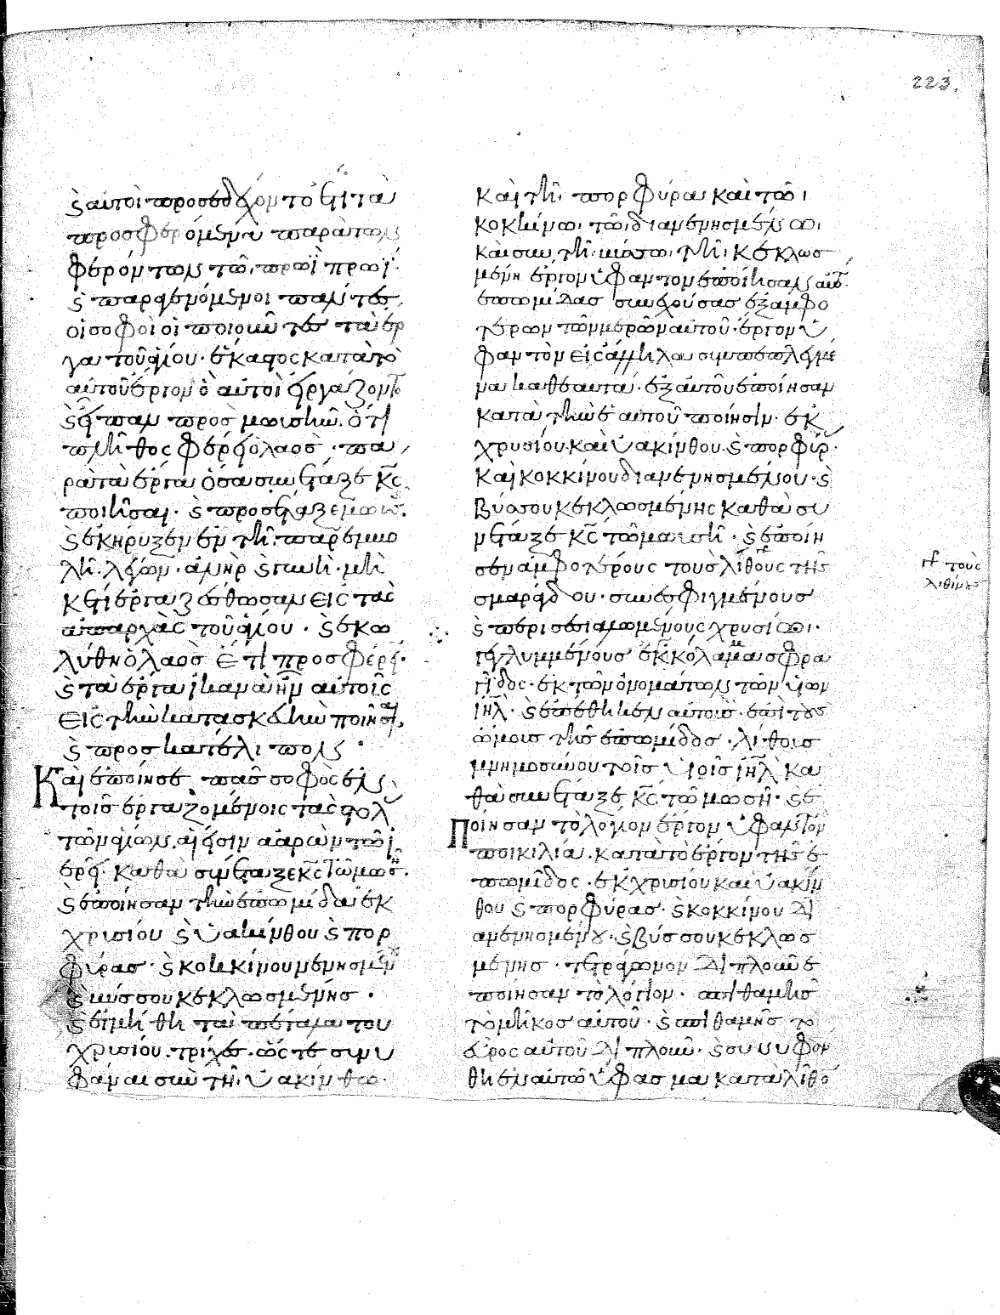 223.
ϗ αὐτοὶ προσεδέχοντο ἔτι τὰ
προσφερόμενα παρὰ τῶν
φερόντων τῶι πρωῒ πρωῒ·
ϗ παρεγένοντο πάντες
οἱ σοφοὶ οἱ ποιοῦντες τὰ ἔρ
γα τοῦ ἁγίου· ἕκαστος κατὰ τὸ
αὐτοῦ ἔργον ὃ αὐτοὶ ἠργάζοντο
ϗ εἶπαν πρὸς μωυσῆν· ὅτι
πλῆθος φέρει ὁ λαὸς· πα
ρὰ τὰ ἔργα ὅσα συνέταξε κς
ποιῆσαι· ϗ προσέταξε μωυσ.
ϗ ἐκήρυξεν ἐν τῆι παρεμβο
λῆι· λέγων· ἀνὴρ ϗ γυνὴ· μὴ
κέτι ἐργαζέσθωσαν εἰς τὰς
ἀπαρχὰς τοῦ ἁγίου· ϗ ἐκω
λύθη ὁ λαὸς ἔτι προσφέρειν·
ϗ τὰ ἔργα ἱκανὰ ἦν αὐτοῖς
εἰς τὴν κατασκευὴν ποιῆσαι,
ϗ προσκατέλιπον·
Καὶ ἐποίησε πᾶς σοφὸς ἐν
τοῖς ἐργαζομένοις τὰς στολ
τῶν ἁγίων, αἵ εἰσιν ἀαρὼν τῶι ἱ
ερεῖ· καθὰ συνέταξε κς τῶ μωσῆ.
ϗ ἐποίησαν τὴν ἐπωμίδα ἐκ
χρυσίου ϗ ὑακίνθου ϗ πορ
φύρας· ϗ κοκκίνου νενησμέν
ϗ βύσσου κεκλωσμένης·
ϗ ἐτμήθη τὰ πέταλα του
χρυσίου τρίχες· ὥστε συνυ
φάναι σὺν τῆι ὑακίνθω·
καὶ τῆι πορφύρα καὶ τῶι
κοκκίνω τῶι διανενησμένωι
καὶ σὺν τῆι βύσσω τῆι κεκλωσ
μένη ἔργον ὑφαντὸν ἐποίησαν αὐτ·
ἐπωμίδας συνεχούσας ἐξ ἀμφο
τέρων τῶν μερῶν αὐτοῦ· ἔργον ὑ
φαντὸν εἰς ἄλληλα συμπεπλεγμέ
να καθ ἑαυτὰ· ἐξ αὐτοῦ ἐποίησαν
κατὰ τὴν ἑαυτοῦ ποίησιν· ἐκ
χρυσίου καὶ ὑακίνθου ϗ πορφύρ·
καὶ κοκκίνου διανενησμένου· ϗ
βύσσου κεκλωσμένης καθὰ συ
νέταξε κς τῶ μωυσῆ· ϗ ἐποίη
σαν ἀμφοτέρους τοὺς λίθους τῆς
σμαράγδου· συνεσφιγμένους
ϗ περισεσιαλωμένους χρυσίωι·
γεγλυμμένους ἐκκόλαμμα σφρα
γῖδος· ἐκ τῶν ὀνομάτων τῶν υἱῶν
ιηλ· ϗ ἐπέθηκεν αὐτοὺς ἐπὶ τοὺς
ὤμους τῆς ἐπωμίδος· λίθους
μνημοσύνου τοῖς υἱοῖς ιηλ κα
θὰ συνέταξε κς τῶ μωσῆ· ϗ ἐ
Ποίησαν τὸ λόγιον ἔργον ὑφαντὸν
ποικιλία· κατὰ τὸ ἔργον τῆς ἐ
πωμίδος· ἐκ χρυσίου καὶ ὑακίν
θου ϗ πορφύρας· ϗ κοκκίνου δι
ανενησμένου· ϗ βύσσου κεκλωσ
μένης· τετράγωνον διπλοῦν ἐ
ποίησαν τὸ λόγιον· σπιθαμῆς
τὸ μῆκος αὐτοῦ· ϗ σπιθαμῆς τὸ
εὖρος αὐτοῦ διπλοῦν· ϗ συνυφάν
θη ἐν αὐτῶ ὕφασμα κατάλιθο
τοὺς
λιθίνους